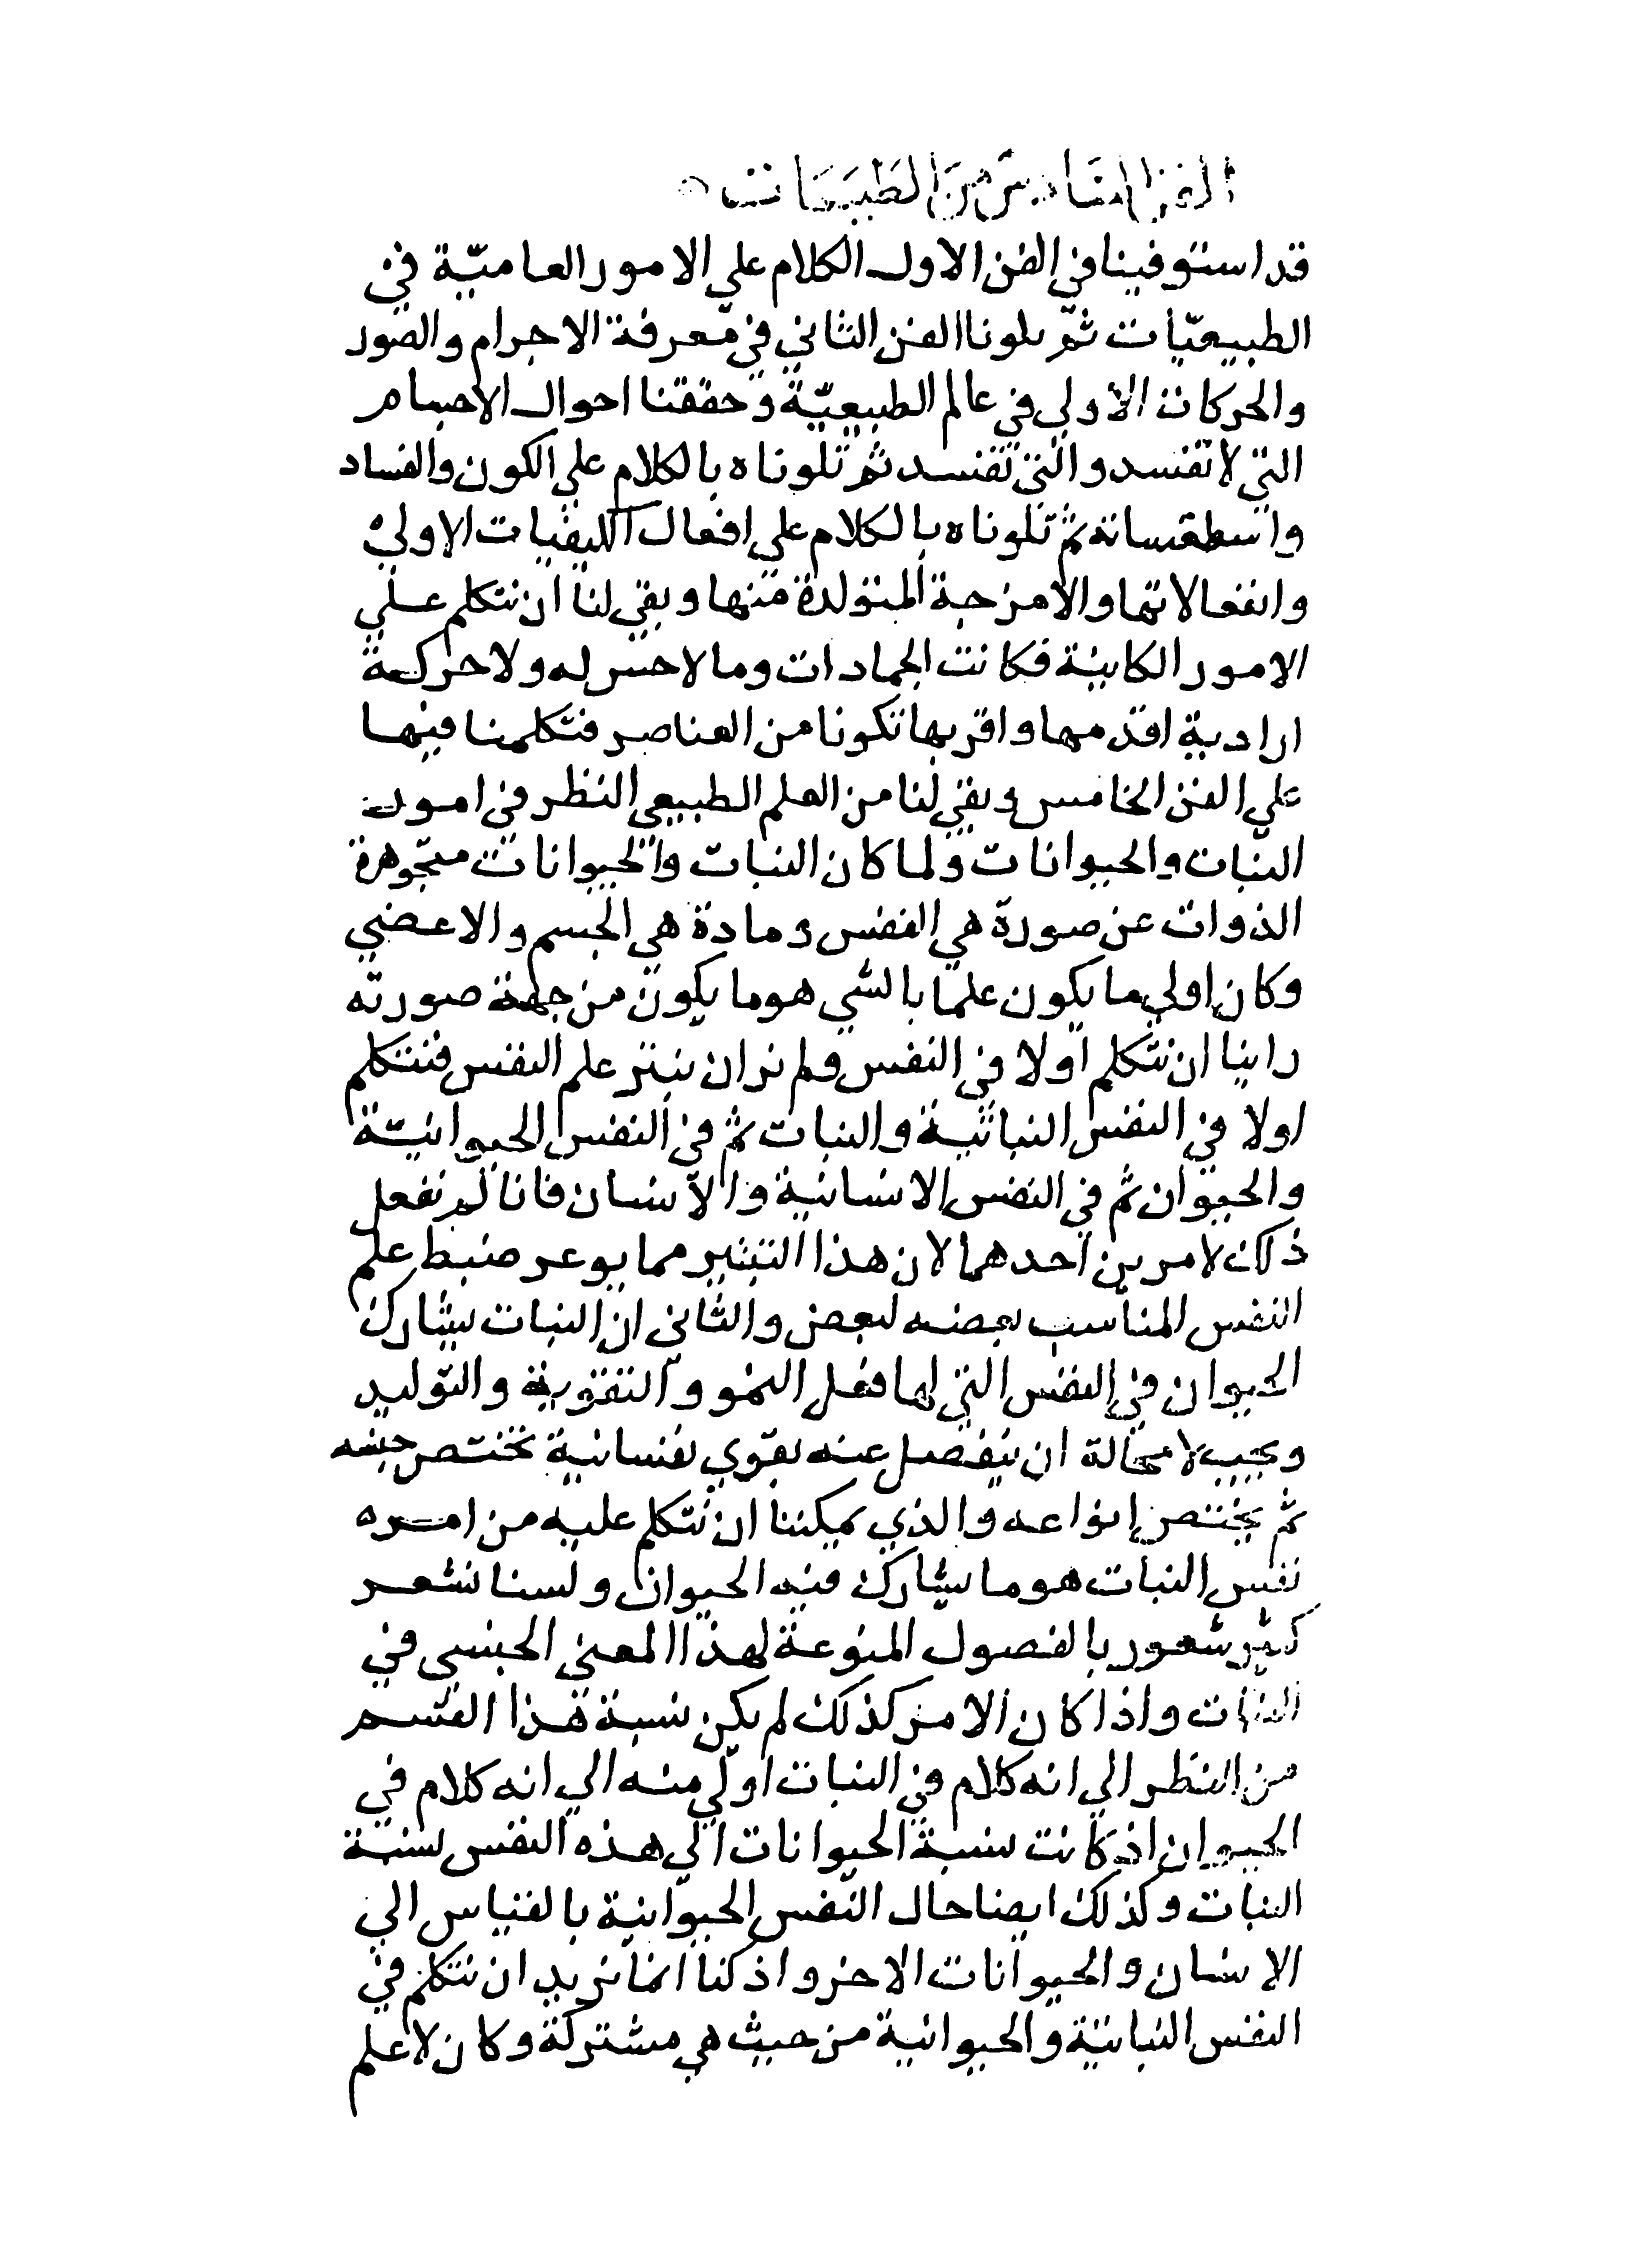 الفن السادس من الطبيعيات
قد استوفينا في الفن الاول الكلام علي الامور العاميّة في
الطبيعيّات ثمّ تلونا الفن الثاني في معرفة الاجرام والصور
والحركات الاولي في عالم الطبيعيّة وحققنا احوال الاجسام
التي لا تفسد والتي تفسد ثم تلوناه بالكلام علي الكون والفساد
واسطقساته ثم تلوناه بالكلام علي افعال الكيفيات الاولي
وانفعالاتها والامزجة المتولدة منها وبقي لنا ان نتكلم علي
الامور الكاينة فكانت الجمادات وما لا حس له ولا حركة
ارادية اقدمها واقربها تكونا من العناصر فتكلمنا فيها
علي الفن الخامس وبقي لنا من العلم الطبيعي النظر في امور
النبات والحيوانات ولما كان النبات والحيوانات متجوهرة
الذوات عن صورة هي النفس ومادة هي الجسم والاعضي
وكان اولي ما يكون علما بالشي هو ما يكون من جهة صورته
راينا ان نتكلم اولا في النفس ولم نر ان نبتر علم النفس فنتكلم
اولا في النفس النباتية والنبات ثم في النفس الحيوانيّة
والحيوان ثم في النفس الانسانية والانسان فانا لم نفعل
ذلك لامرين احدهما لان هذا التبتير مما يوعر ضبط علم
النفس المناسب بعضه لبعض والثاني ان النبات يشارك
الحيوان في النفس التي لها فعل النمو والتغذية والتوليد
ويجب لا محالة ان ينفصل عنه بقوي نفسانية تختص جنسه
ثم يختص انواعه والذي يمكننا ان نتكلم عليه من امره
نفس النبات هو ما يشارك فيه الحيوان ولسنا نشعر
كثير شعور بالفصول المنوعة لهذا المعني الجنسي في
النبات واذا كان الامر كذلك لم يكن نسبة هذا القسم
من النظر الي انه كلام في النبات اولي منه الي انه كلام في
الحيوان اذ كانت نسبة الحيوانات الي هذه النفس نسبة
النبات وكذلك ايضا حال النفس الحيوانية بالقياس الي
الانسان والحيوانات الاخر واذ كنا انما نريد ان نتكلم في
النفس النباتيّة والحيوانية من حيث هي مشتركة وكان لا علم